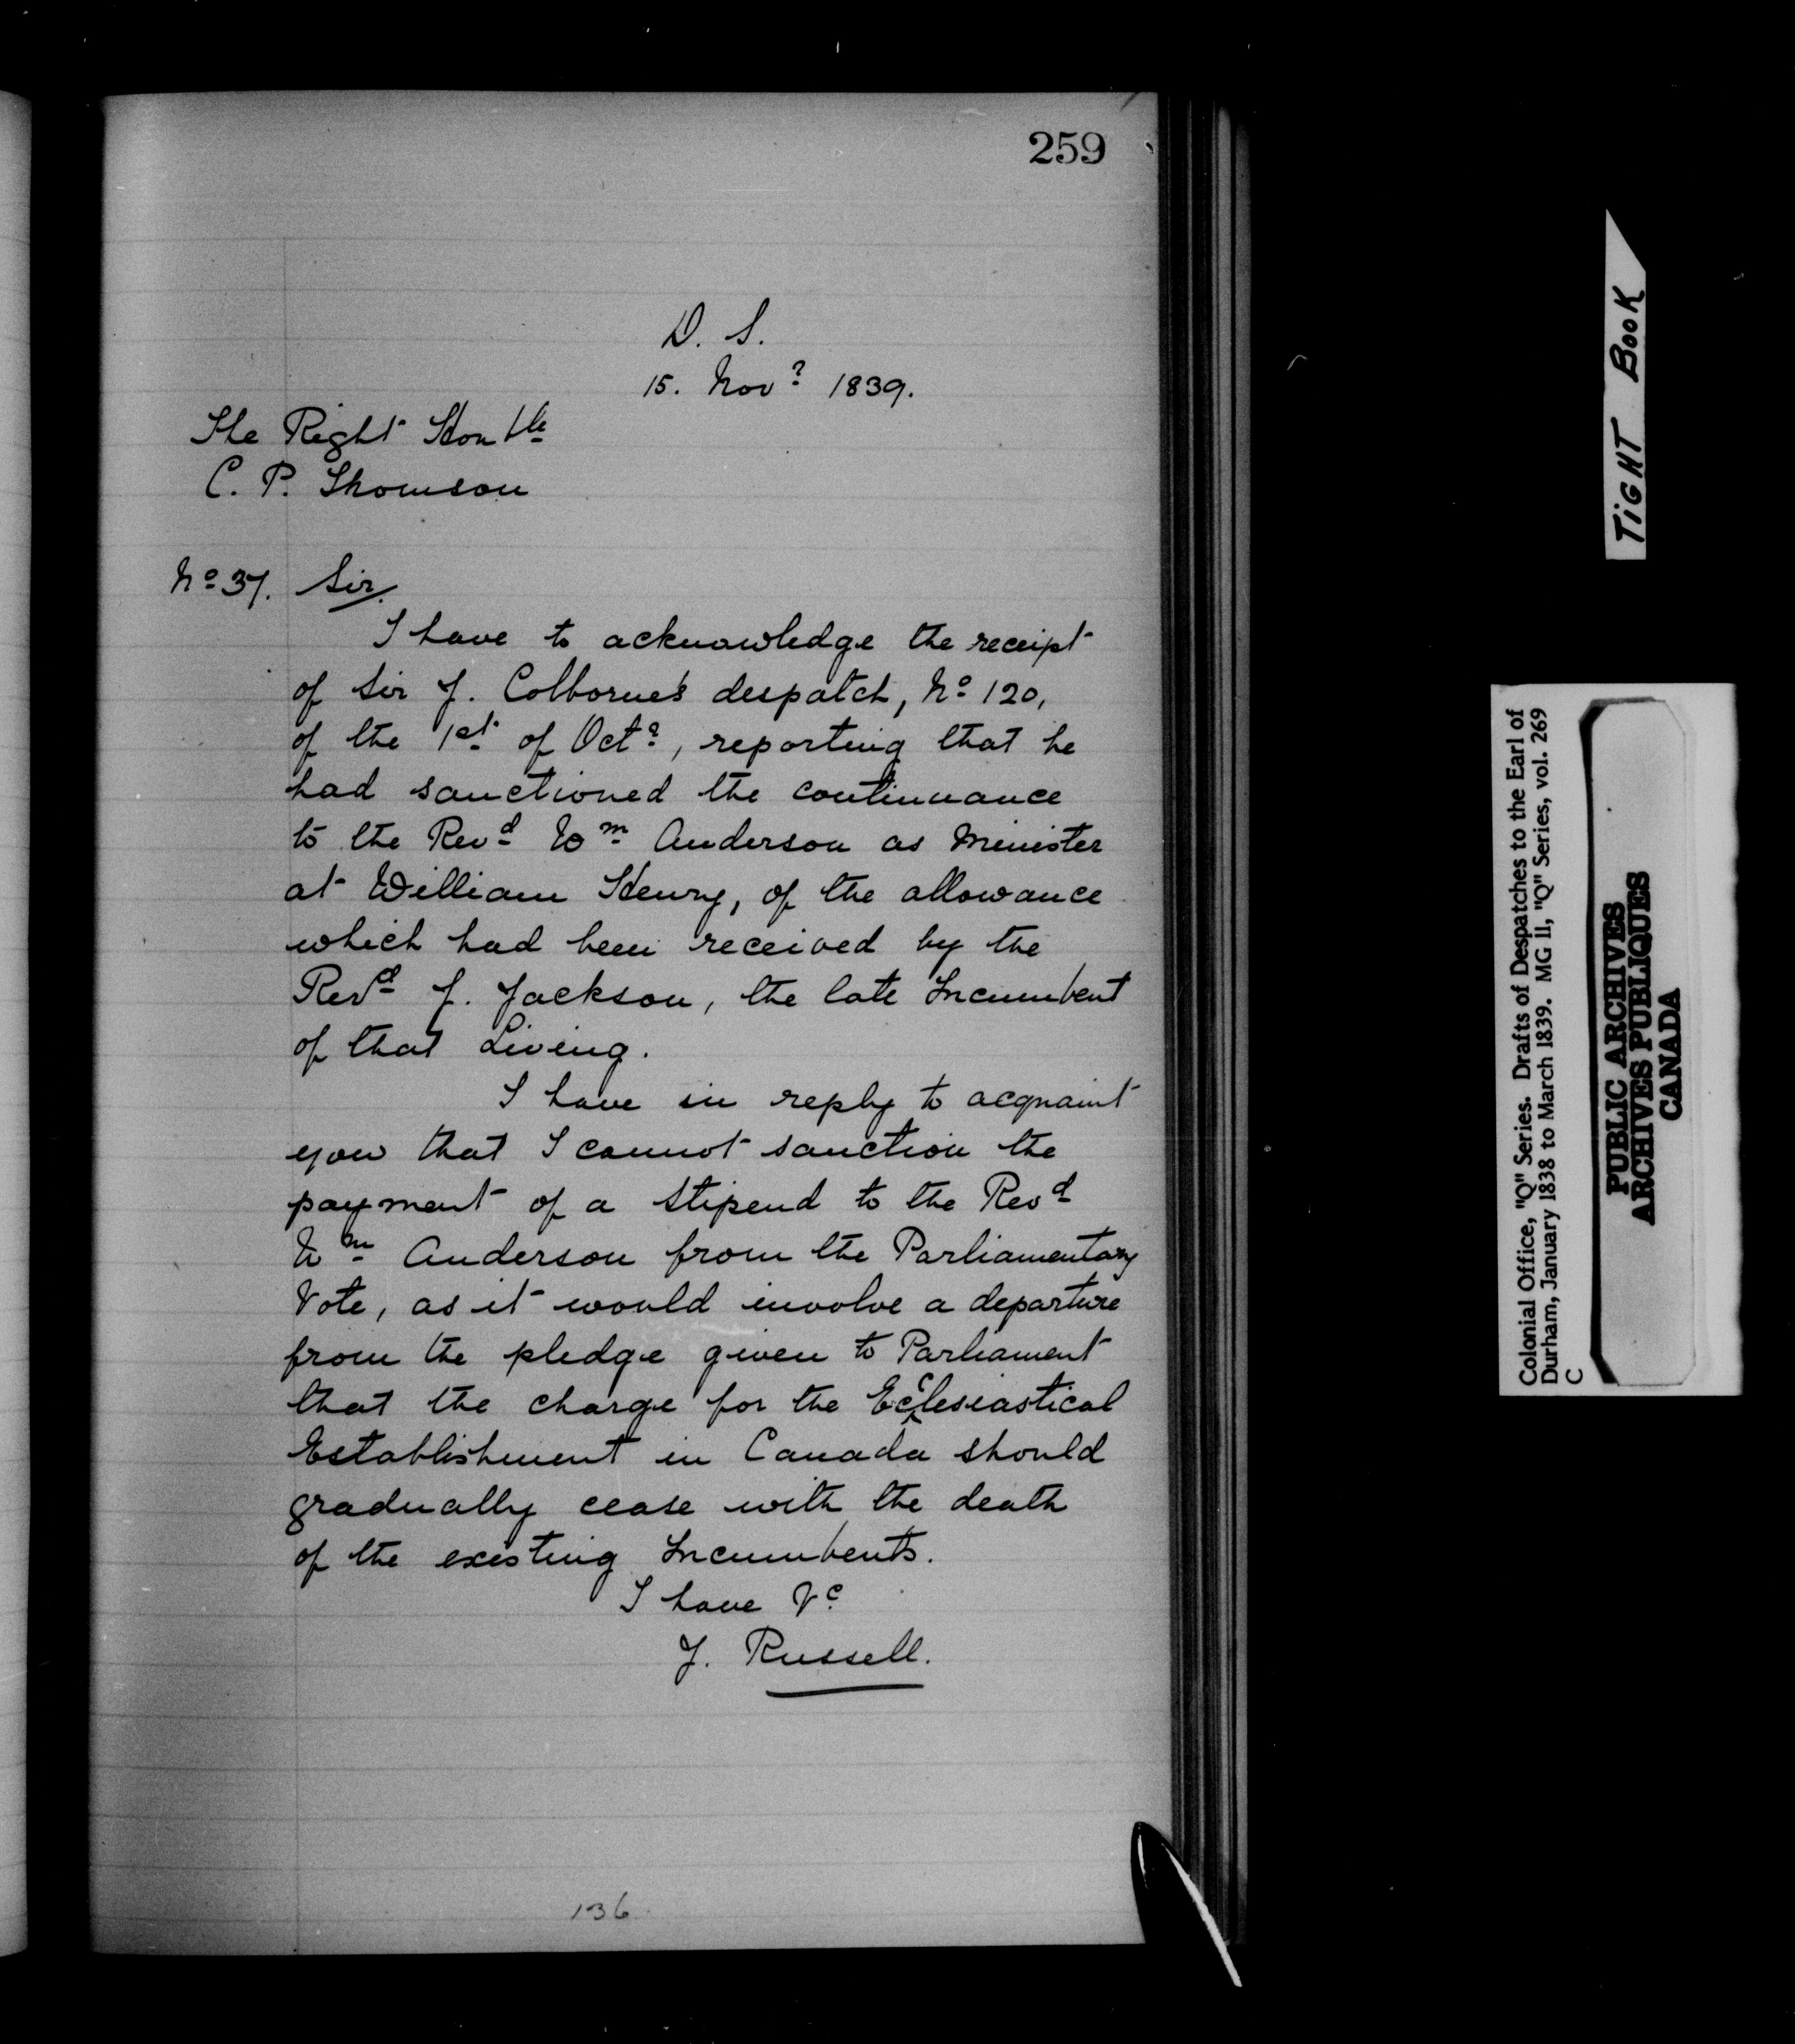 259
D. S.
15. Novr 1839.
The Right Honble
C. P. Thomson
No 37. Sir,
I have to acknowledge the receipt
of Sir J. Colborne's despatch, No 120,
of the 1st of Octr, reporting that he
had sanctioned the continuance
to the Revd Wm Anderson as Minister
at William Henry, of the allowance
which had been received by the
Revd J. Jackson, the late Incumbent
of that Living.
I have in reply to acquaint
you that I cannot sanction the
payment of a stipend to the Revd
Wm Anderson from the Parliamentary
Vote, as it would involve a departure
from the pledge given to Parliament
that the charge for the Ecclesiastical
Establishment in Canada should
gradually cease with the death
of the existing Incumbents.
I have &c
J. Russell.
136
TIGHT BOOK
Colonial Office, "Q" Series. Drafts of Despatches to the Earl of
Durham, January 1838 to March 1839. MG 11, "Q" Series, vol. 269
C
PUBLIC ARCHIVES
ARCHIVES PUBLIQUES
CANADA